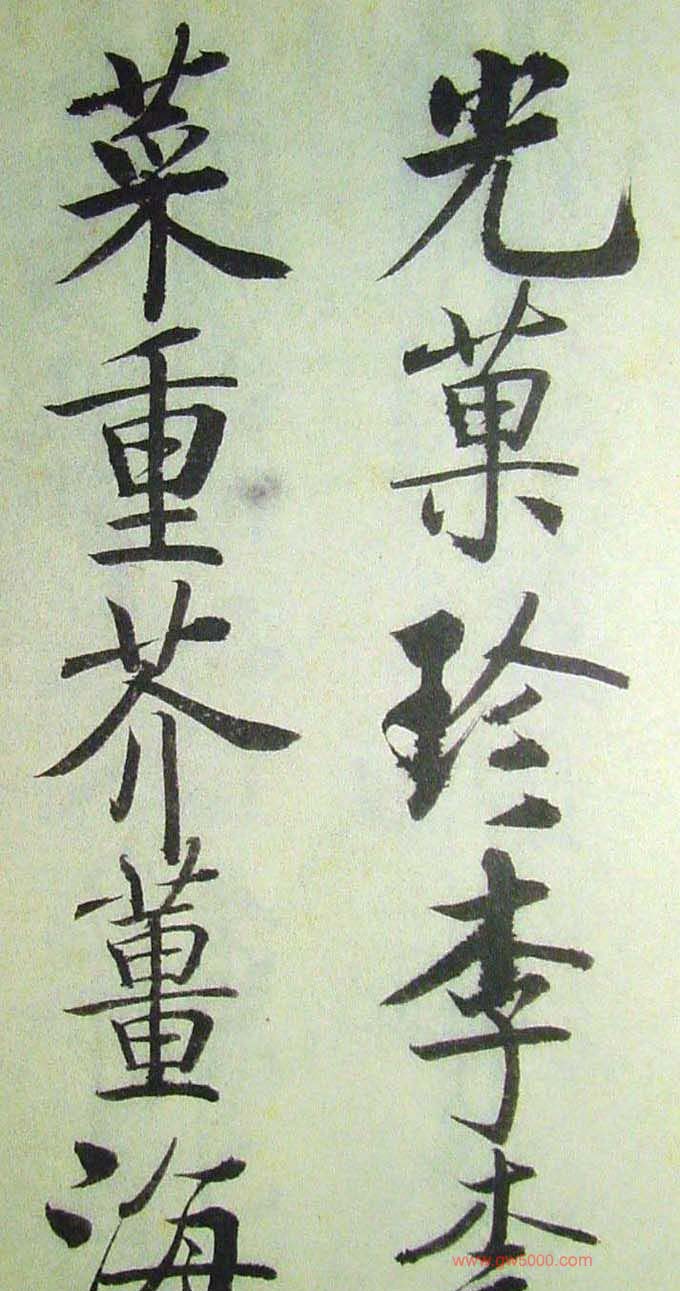 光菓珍李柰
菜重芥薑海
www.gw5000.com